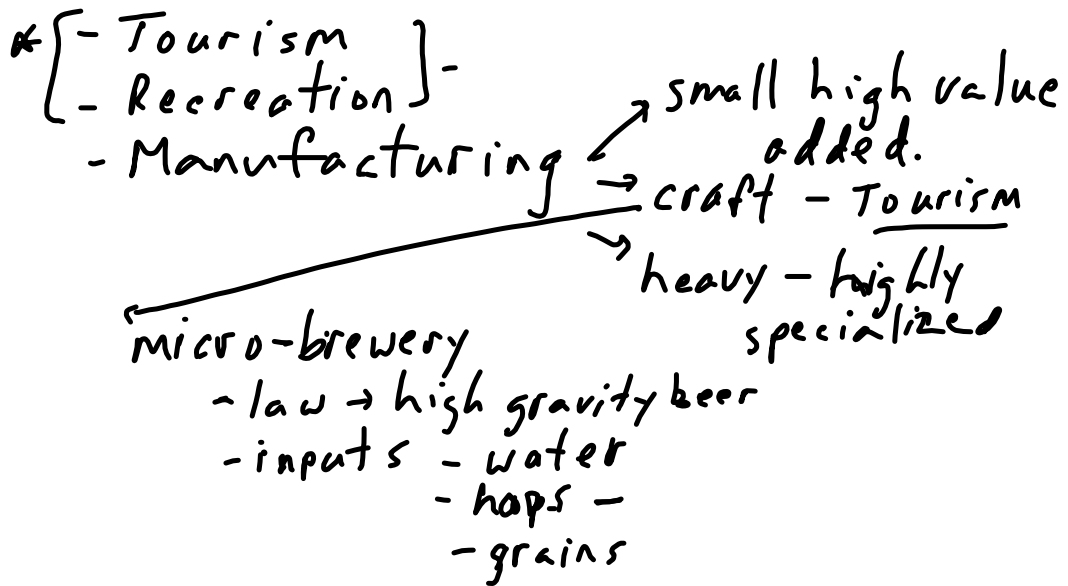 * [ - Tourism
- Recreation ] -
- Manufacturing
→ small high value
added.
→ craft - Tourism
→ heavy - highly
specialized
micro-brewery
- law → high gravity beer
- inputs - water
- hops -
- grains